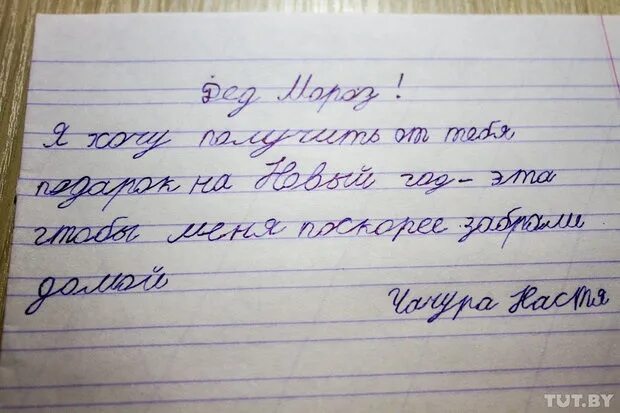 Дед Мороз!
Я хочу получить от тебя
подарок на Новый год - эта
чтобы меня поскорее забрали
домой
Чачура Настя
TUT.BY